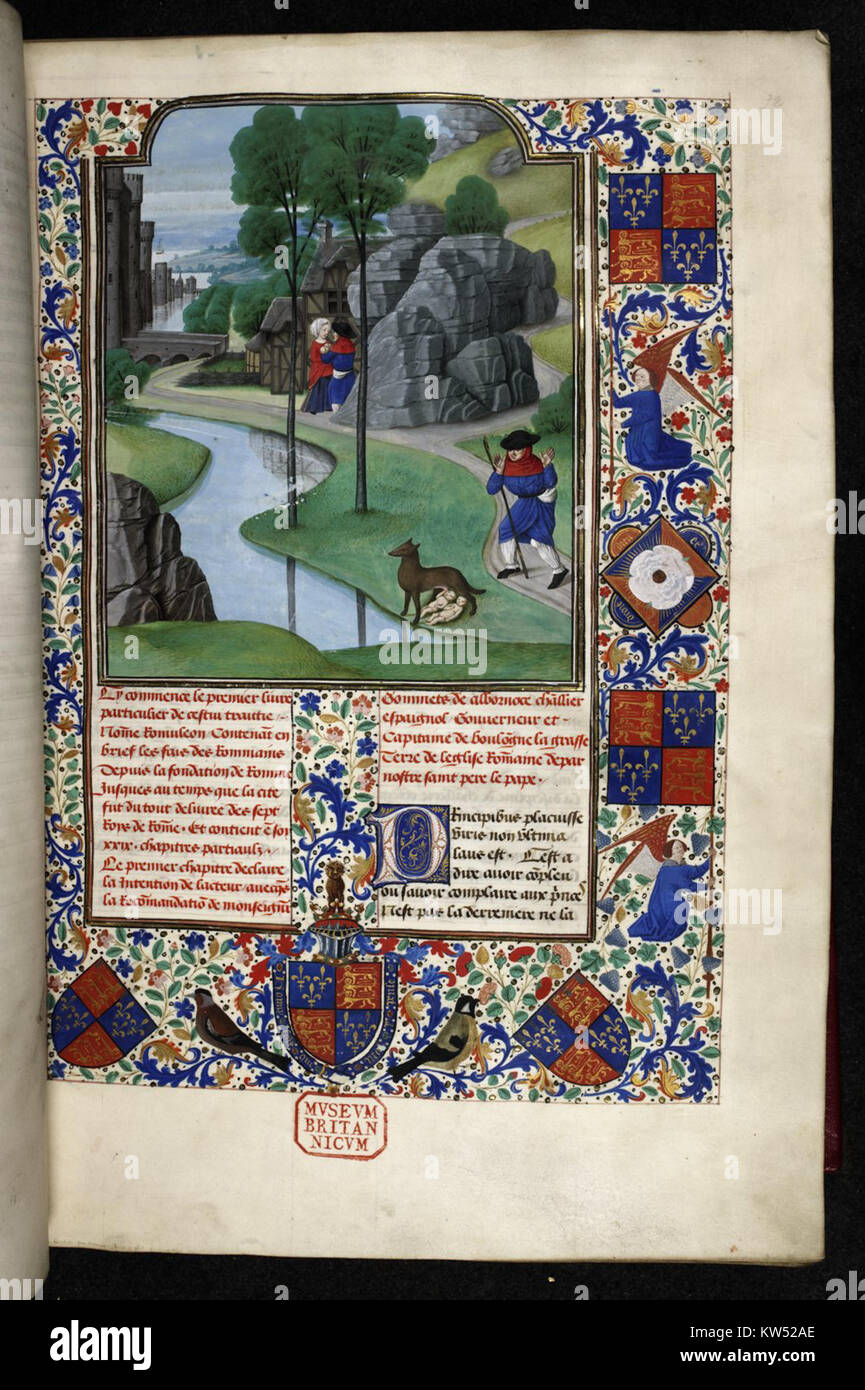 Cy commence le premier livre
particulier de cestui traitie
Nome Romuleon Contenat en
brief les fais des Rommains
Depuis la fondation de Romme
Jusques au temps que la cite
fut du tout delivre des sept
Roys de Rome · Et contient e soy
xxix · chapitres partiaulx
Le premier chapitre declaire
la Intention de lacteur avecqs
la Recomandatio de monseignr
Gommets de albornoce challier
espaignol · Gouverneur et
Capitaine de boulogne la grasse
Terre de leglise Romaine de par
nostre saint pere le pape ·
Principibus placuisse
viris non ultima
laus est · Cest a
dire avoir copleu
ou savoir complaire aux prnces
Nest pas la derremiere ne la
MVSEVM
BRITAN
NICVM
alamy
a
alamy
Image ID: KW52AE
www.alamy.com